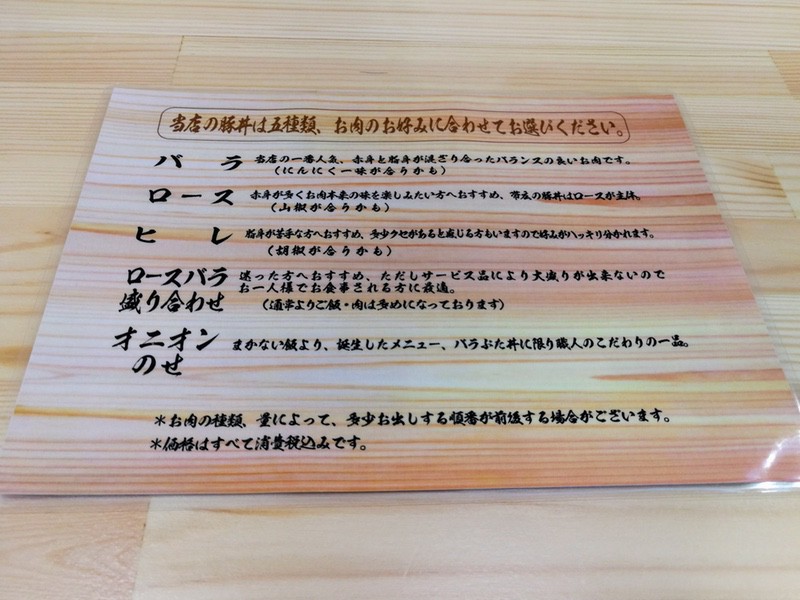 当店の豚丼は五種類、お肉のお好みに合わせてお選びください。
バラ 当店の一番人気、赤身と脂身が混ざり合ったバランスの良いお肉です。
(にんにく一味が合うかも)
ロース 赤身が多くお肉本来の味を楽しみたい方へおすすめ、帯広の豚丼はロースが主体。
(山椒が合うかも)
ヒレ 脂身が苦手な方へおすすめ、多少クセがあると感じる方もいますので好みがハッキリ分かれます。
(胡椒が合うかも)
ロースバラ 迷った方へおすすめ、ただしサービス品により大盛りが出来ないので
盛り合わせ お一人様でお食事される方に最適。
(通常よりご飯・肉は多めになっております)
オニオン
のせ まかない飯より、誕生したメニュー、バラぶた丼に限り職人のこだわりの一品。
＊お肉の種類、量によって、多少お出しする順番が前後する場合がございます。
＊価格はすべて消費税込みです。